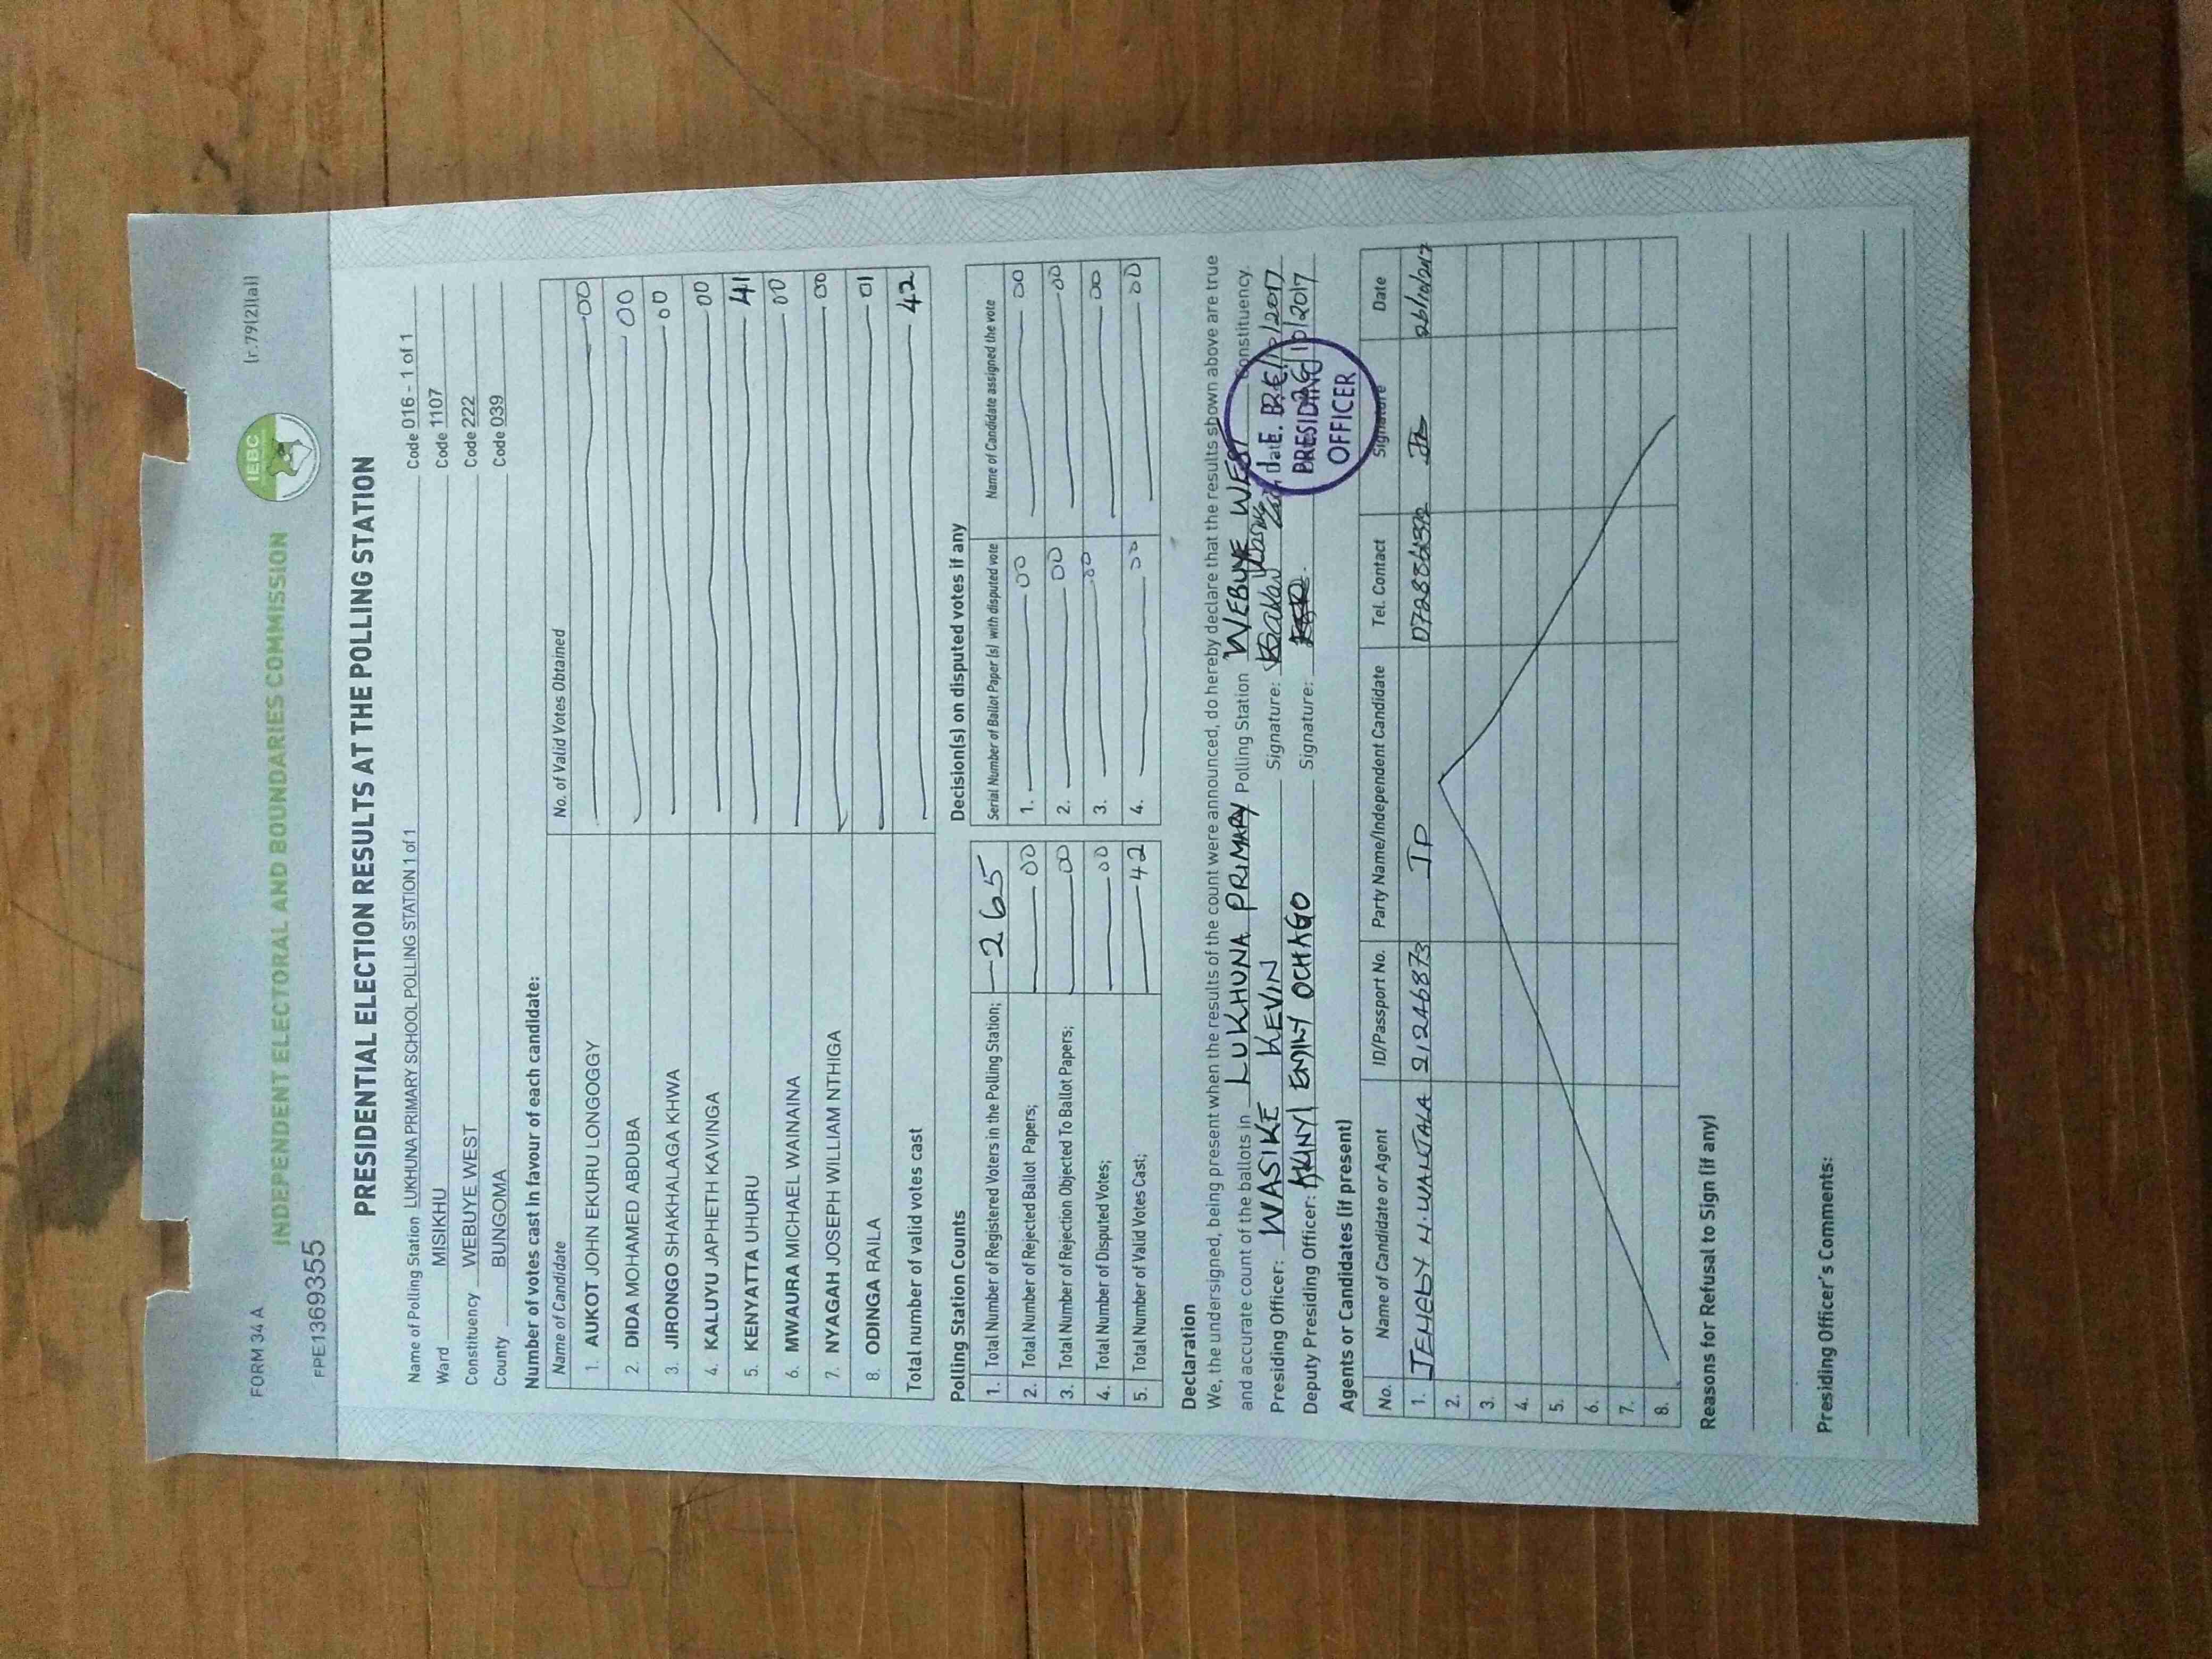 FORM 34 A
INDEPENDENT ELECTORAL AND BOUNDARIES COMMISSION
IEBC
[r.79(2)(a)]
FPE1369355
PRESIDENTIAL ELECTION RESULTS AT THE POLLING STATION
Name of Polling Station LUKHUNA PRIMARY SCHOOL POLLING STATION 1 of 1 Code 016 - 1 of 1
Ward MISIKHU Code 1107
Constituency WEBUYE WEST Code 222
County BUNGOMA Code 039
Number of votes cast in favour of each candidate:
Name of Candidate No. of Valid Votes Obtained
1. AUKOT JOHN EKURU LONGOGGY 00
2. DIDA MOHAMED ABDUBA 00
3. JIRONGO SHAKHALAGA KHWA 00
4. KALUYU JAPHETH KAVINGA 00
5. KENYATTA UHURU 41
6. MWAURA MICHAEL WAINAINA 00
7. NYAGAH JOSEPH WILLIAM NTHIGA 00
8. ODINGA RAILA 01
Total number of valid votes cast 42
Polling Station Counts
1. Total Number of Registered Voters in the Polling Station; 265
2. Total Number of Rejected Ballot Papers; 00
3. Total Number of Rejection Objected To Ballot Papers; 00
4. Total Number of Disputed Votes; 00
5. Total Number of Valid Votes Cast; 42
Decision(s) on disputed votes if any
Serial Number of Ballot Paper (s) with disputed vote Name of Candidate assigned the vote
1. 00 00
2. 00 00
3. 00 00
4. 00 00
Declaration
We, the undersigned, being present when the results of the count were announced, do hereby declare that the results shown above are true
and accurate count of the ballots in LUKHUNA PRIMARY Polling Station WEBUYE WEST Constituency.
Presiding Officer: WASIKE KEVIN Signature: Date. 26/10/2017
Deputy Presiding Officer: AKINYI EMILY OCHAGO Signature: 26/10/2017
PRESIDING
OFFICER
Agents or Candidates (if present)
No. Name of Candidate or Agent ID/Passport No. Party Name/Independent Candidate Tel. Contact Signature Date
1. N. WANJALA 21246873 JP 26/10/2017
2.
3.
4.
5.
6.
7.
8.
Reasons for Refusal to Sign (if any)
Presiding Officer's Comments: